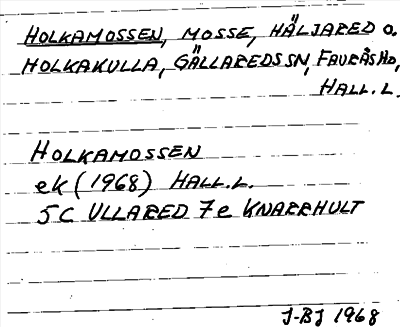 HOLKAMOSSEN, MOSSE, HÄLJARED O.
HOLKAKULLA, GÄLLAREDS SN, FAURÅS HD,
HALL.L.
HOLKAMOSSEN
ek (1968) HALL.L.
5C ULLARED 7e KNARRHULT
J-BJ 1968